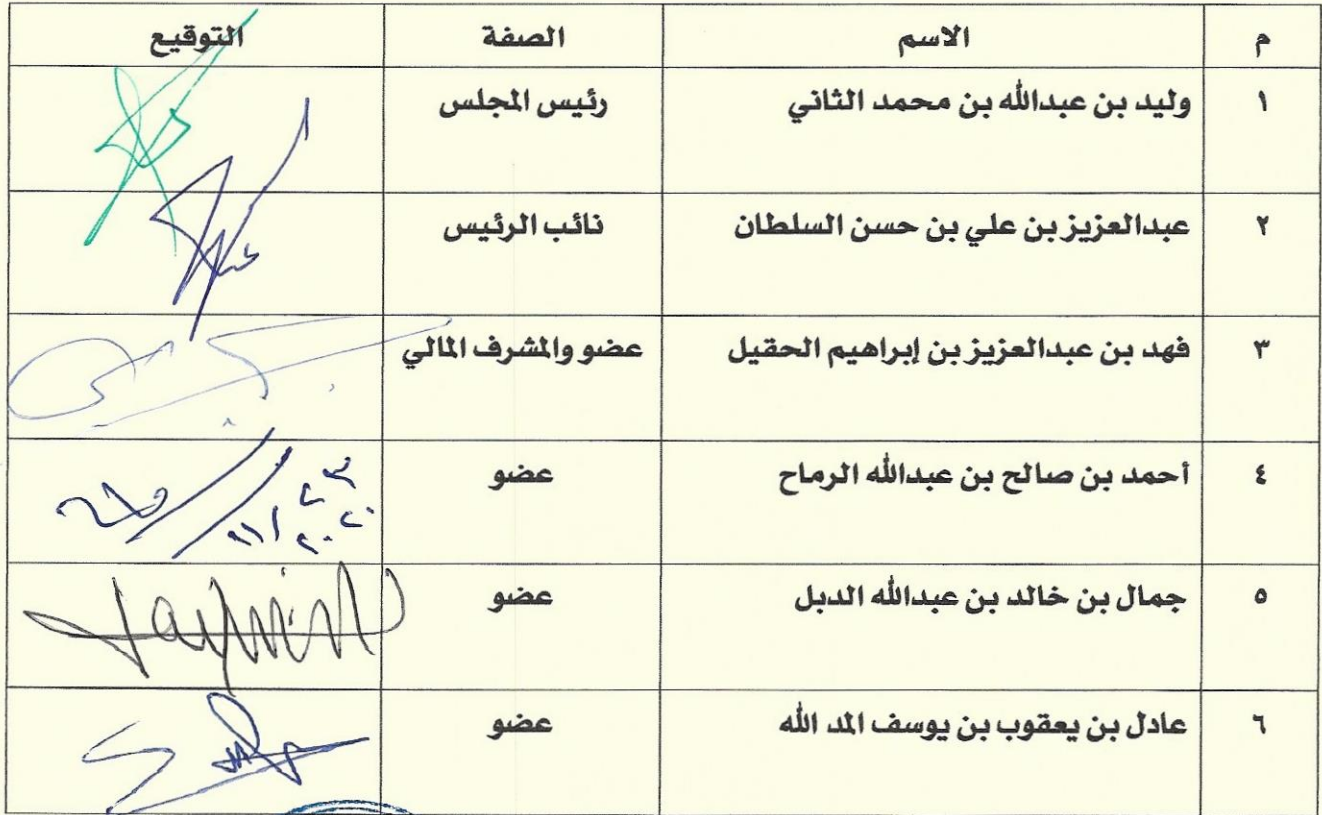 م الاسم الصفة التوقيع
١ وليد بن عبدالله بن محمد الثاني رئيس المجلس
٢ عبدالعزيز بن علي بن حسن السلطان نائب الرئيس
٣ فهد بن عبدالعزيز بن إبراهيم الحقيل عضو والمشرف المالي
٤ أحمد بن صالح بن عبدالله الرماح عضو
٥ جمال بن خالد بن عبدالله الدبل عضو
٦ عادل بن يعقوب بن يوسف المد الله عضو